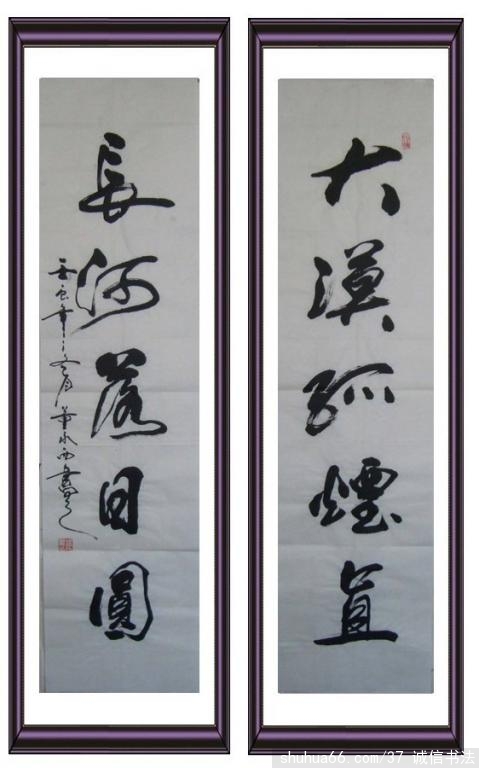 大漠孤煙直
長河落日圓
shuhua66.com/37 诚信书法